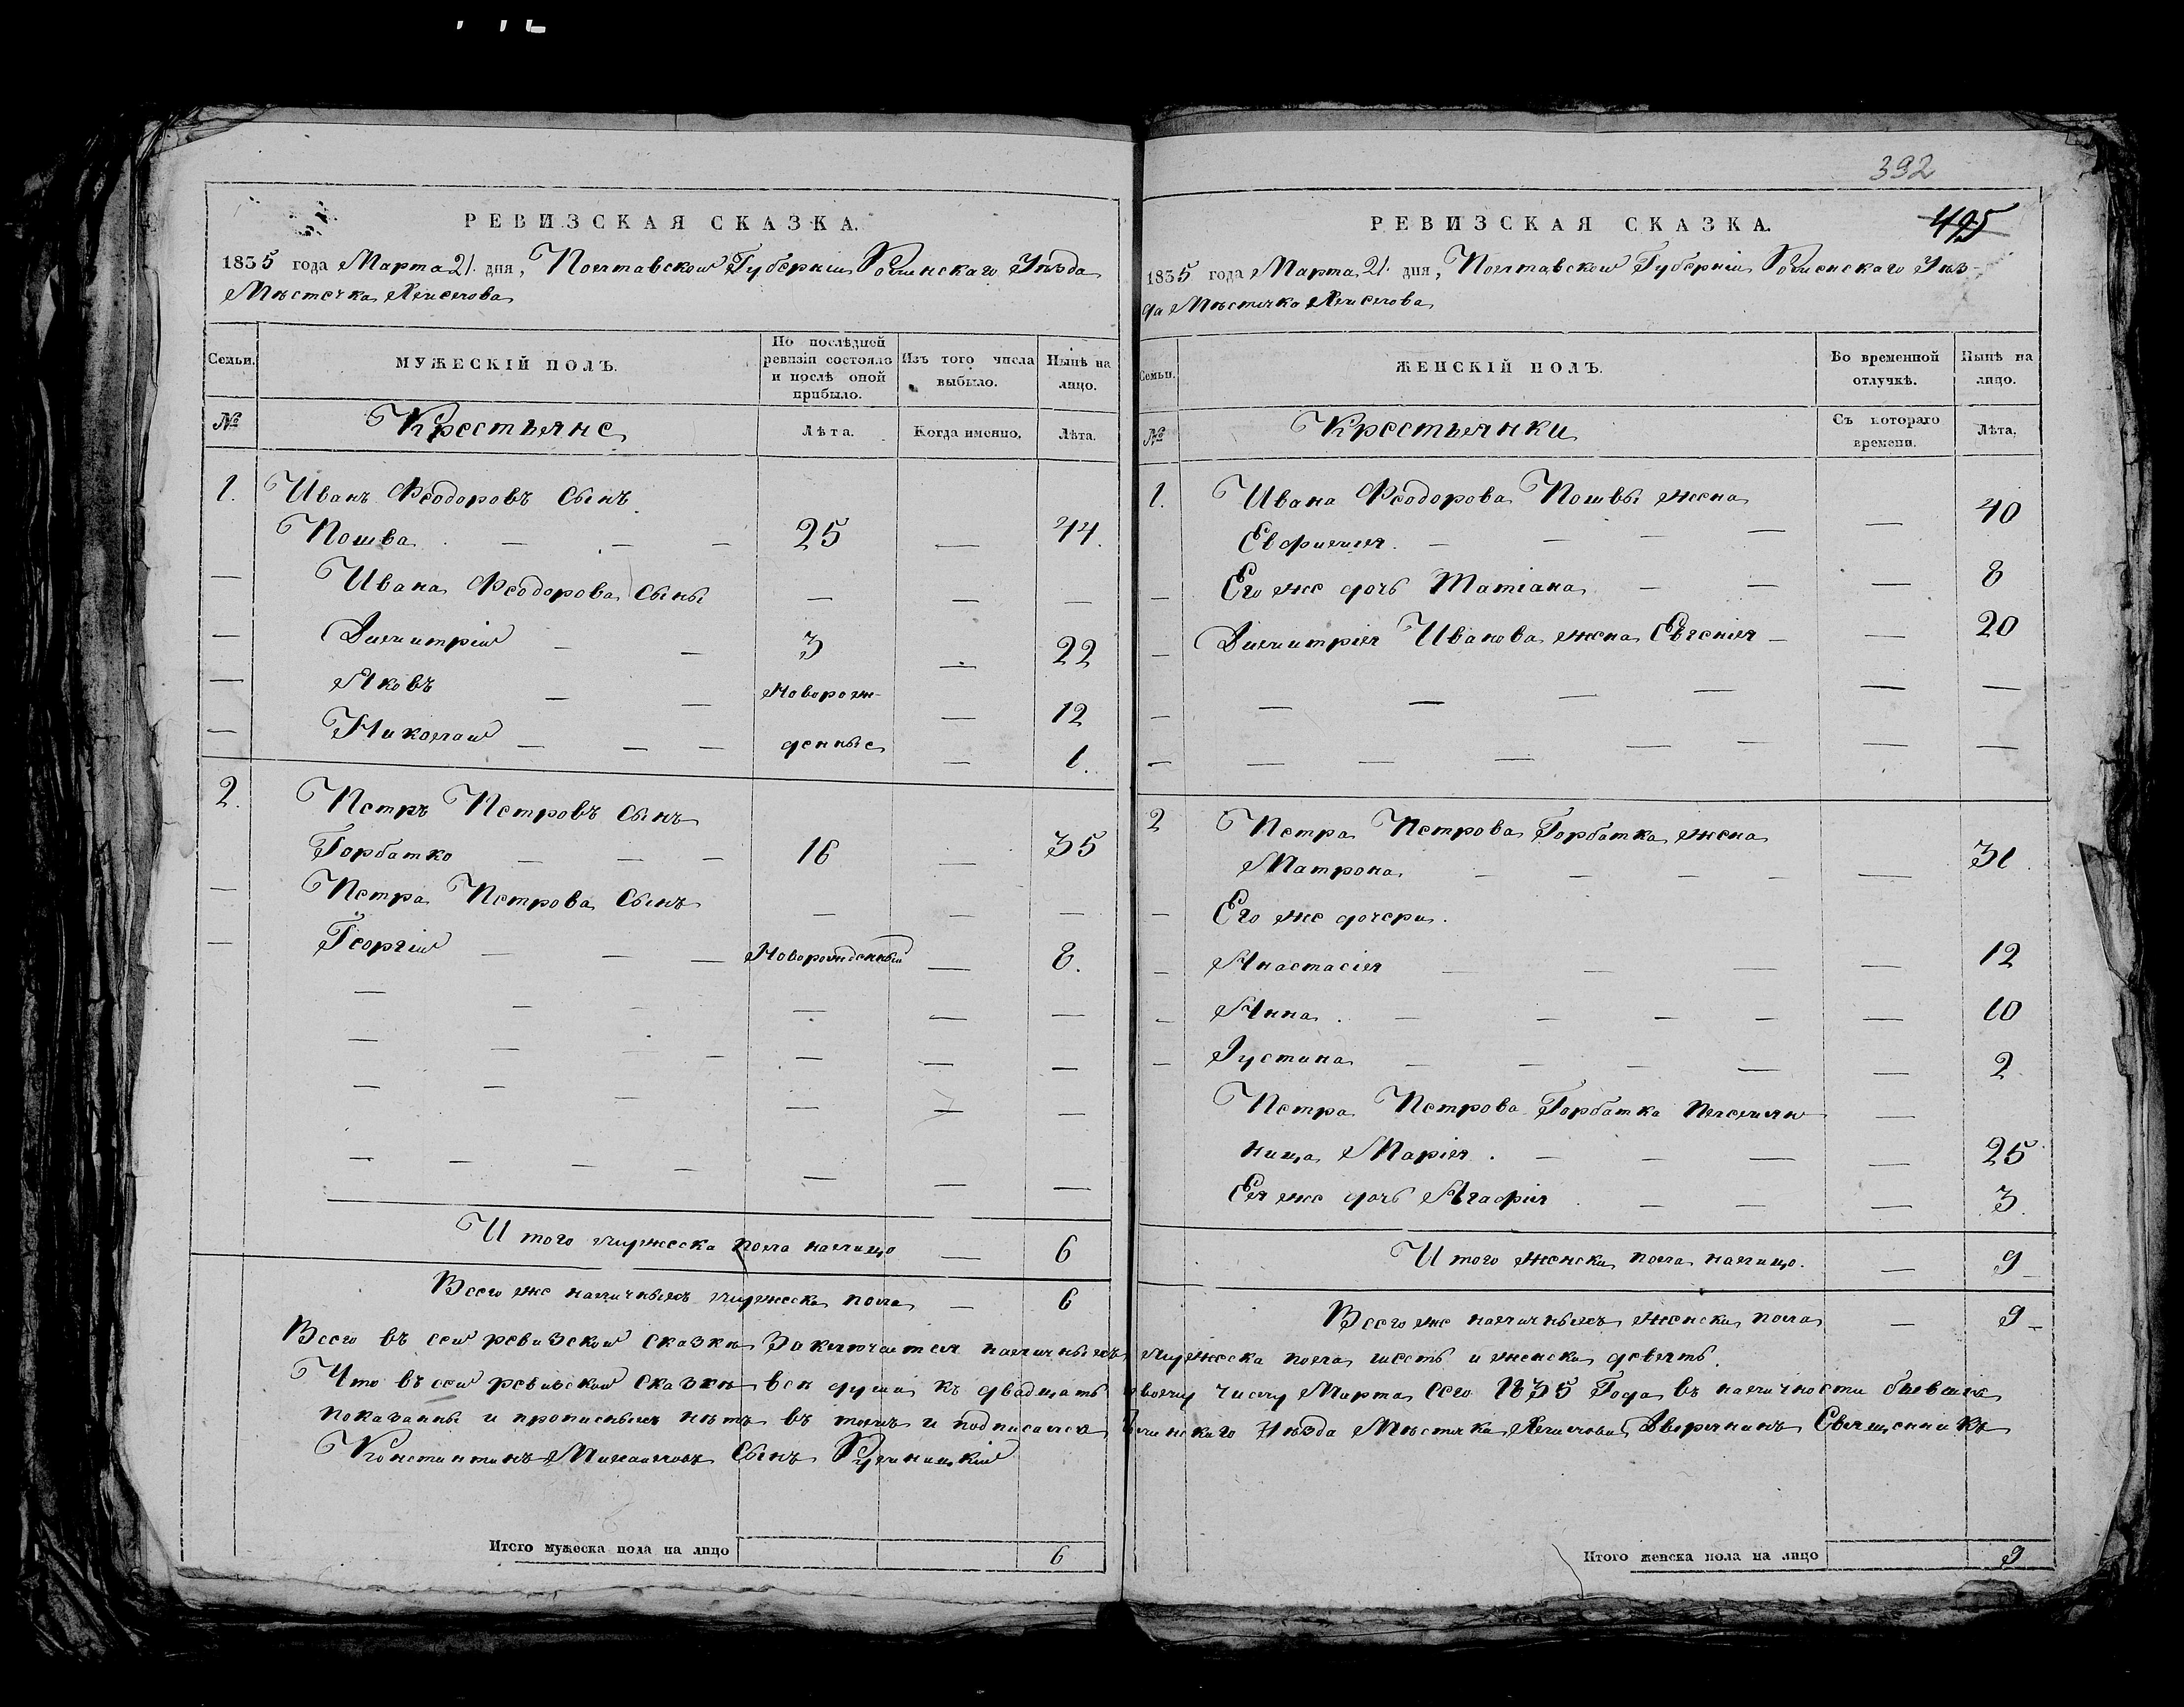 РЕВИЗСКАЯ СКАЗКА.
1835 года Марта 21. дня, Полтавской Губерніи Роменскаго Уѣзда
Мѣстечка
Семьи.
МУЖЕСКІЙ ПОЛЪ.
По послѣдней ревизіи состояло и послѣ оной прибыло.
Изъ того числа выбыло.
Нынѣ на лицо.
№
Крестьяне
Лѣта.
Когда именно.
Лѣта.
1. Иванъ Феодоровъ сынъ
Пошва — — — 25 — 44.
— Ивана Феодорова сыны — — —
— Димитрій — — 3 — 22
— Яковъ — — Новорож- — 12
— Николай — — — денные — 1.
2. Петръ Петровъ сынъ
Горбатко — — — 16 — 35
— Петра Петрова сынъ — — —
— Георгій — — — Новорожденный — 8.
И того мужеска пола налицо — 6
Всего же наличныхъ мужеска пола — 6
392
495
РЕВИЗСКАЯ СКАЗКА.
1835 года Марта 21. дня, Полтавской Губерніи Роменскаго Уѣз-
да Мѣстечка
Семьи.
ЖЕНСКІЙ ПОЛЪ.
Во временной отлучкѣ.
Нынѣ на лицо.
№
Крестьянки
Съ котораго времени.
Лѣта.
1. Ивана Феодорова Пошвы жена
Евфимія. — — — — — 40
— Его же дочь Татіана — — — 8
— Димитрія Иванова жена Евгенія — — 20
2 Петра Петрова Горбатка жена
Матрона — — — — — 31.
— Его же дочери.
— Анастасія — — — — 12
— Анна. — — — — — 10
— Іустина — — — — — 2
Петра Петрова Горбатка племян —
ница Марія. — — — — 25
Ея же дочь Агафія. — — — 3.
И того женска пола налицо. — 9
Всего же наличныхъ женска пола — 9
Всего въ сей ревизской сказкѣ заключается наличныхъ мужеска пола шесть и женска девять.
Что въ сей ревизской сказкѣ всѣ души къ двадцать первому числу Марта сего 1835 Года въ наличности бывшіе
показаны и прописныхъ нѣтъ въ томъ и подписался Роменскаго Уѣзда Мѣстечка Дворянинъ Священникъ
Константинъ Михайловъ Сынъ
Итого мужеска пола на лицо 6
Итого женска пола на лицо 9